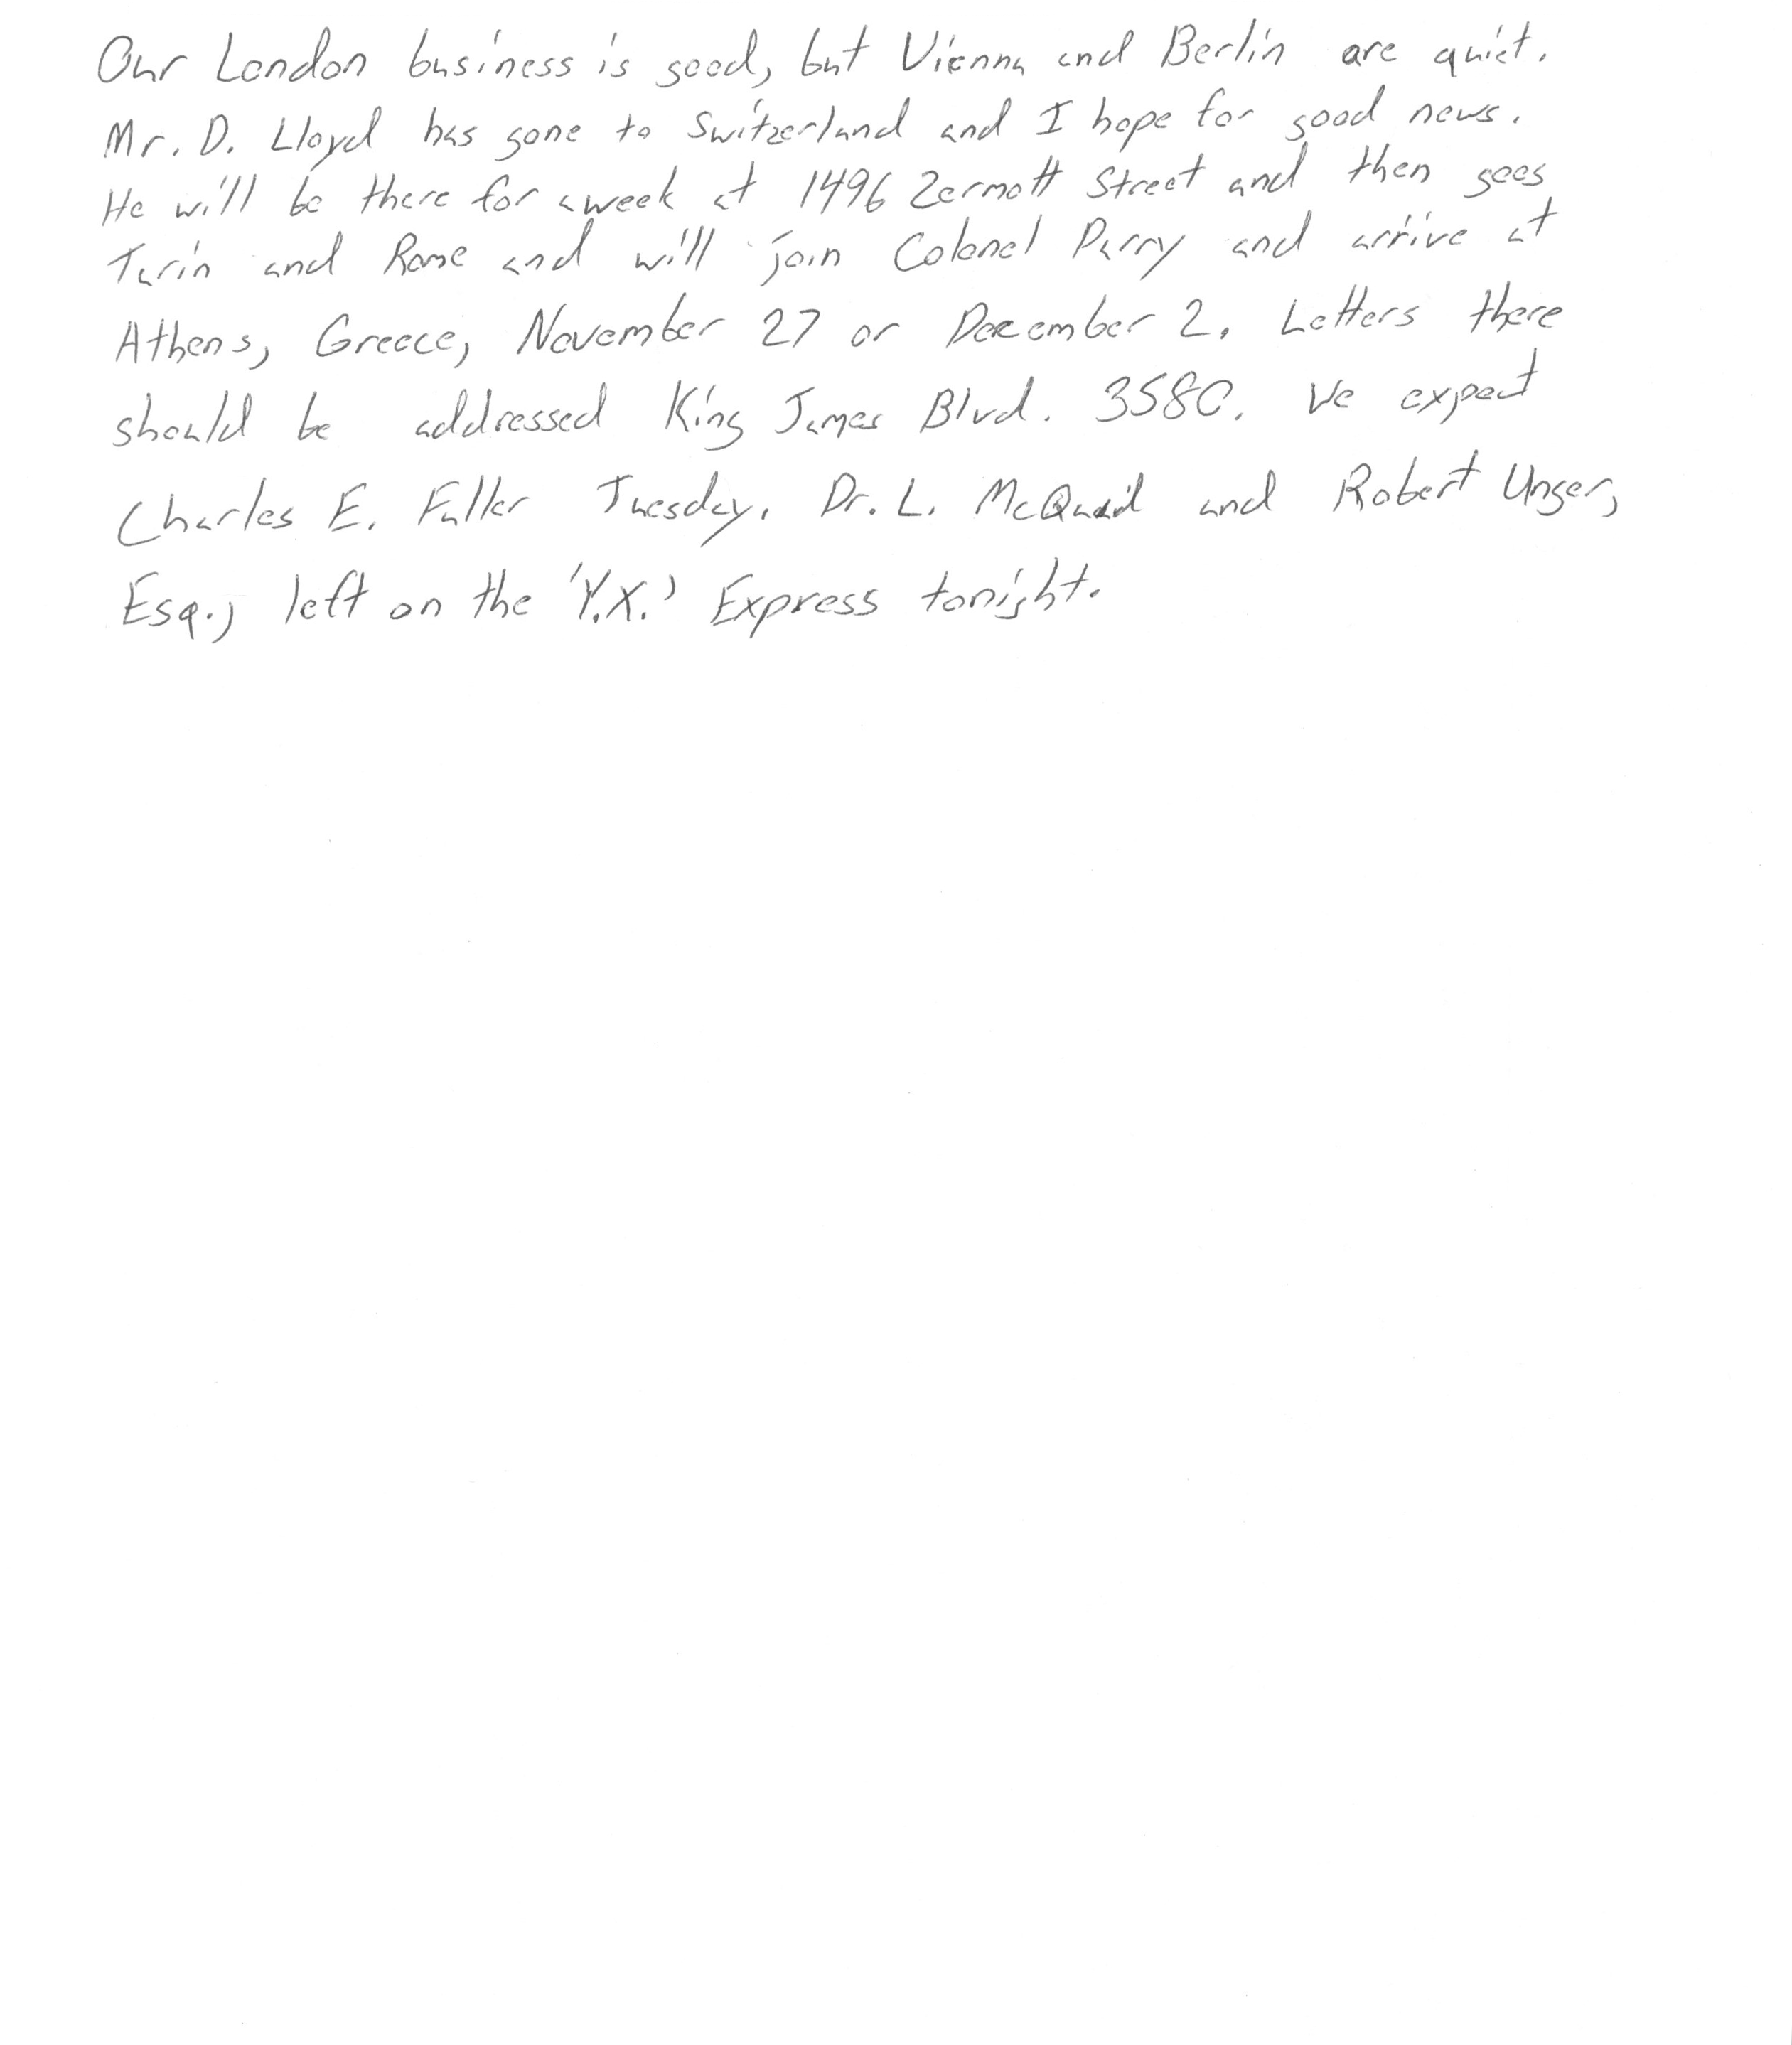 Our London business is good, but Vienna and Berlin are quiet.
Mr. D. Lloyd has gone to Switzerland and I hope for good news.
He will be there for a week at 1496 Zermott Street and then goes
Turin and Rome and will join Colonel Parry and arrive at
Athens, Greece, November 27 or December 2. Letters there
should be addressed King James Blvd. 3580. We expect
Charles E. Fuller Tuesday. Dr. L. McQuaid and Robert Unger,
Esq., left on the 'Y.X.' Express tonight.